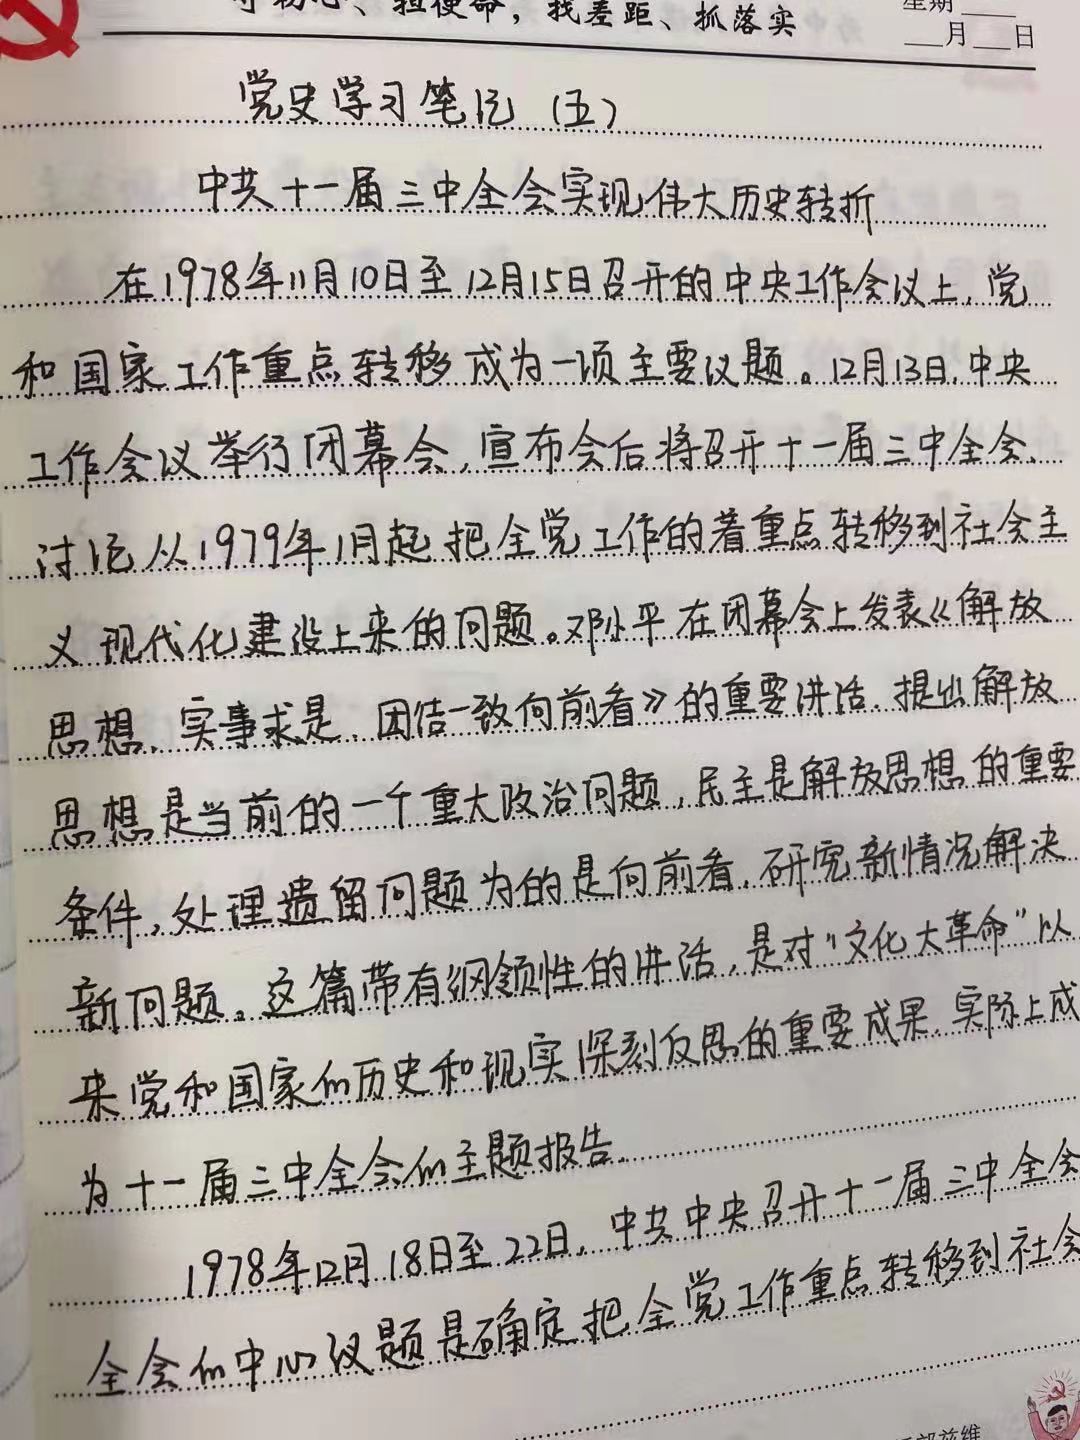 守初心、担使命，找差距、抓落实
星期
月 日
党史学习笔记（五）
中共十一届三中全会实现伟大历史转折
在1978年11月10日至12月15日召开的中央工作会议上，党
和国家工作重点转移成为一项主要议题。12月13日，中央
工作会议举行闭幕会，宣布会后将召开十一届三中全会，
讨论从1979年1月起把全党工作的着重点转移到社会主
义现代化建设上来的问题。邓小平在闭幕会上发表《解放
思想，实事求是，团结一致向前看》的重要讲话，提出解放
思想是当前的一个重大政治问题，民主是解放思想的重要
条件，处理遗留问题为的是向前看，研究新情况解决
新问题。这篇带有纲领性的讲话，是对“文化大革命”以
来党和国家的历史和现实深刻反思的重要成果，实际上成
为十一届三中全会的主题报告。
1978年12月18日至22日，中共中央召开十一届三中全会
全会的中心议题是确定把全党工作重点转移到社会